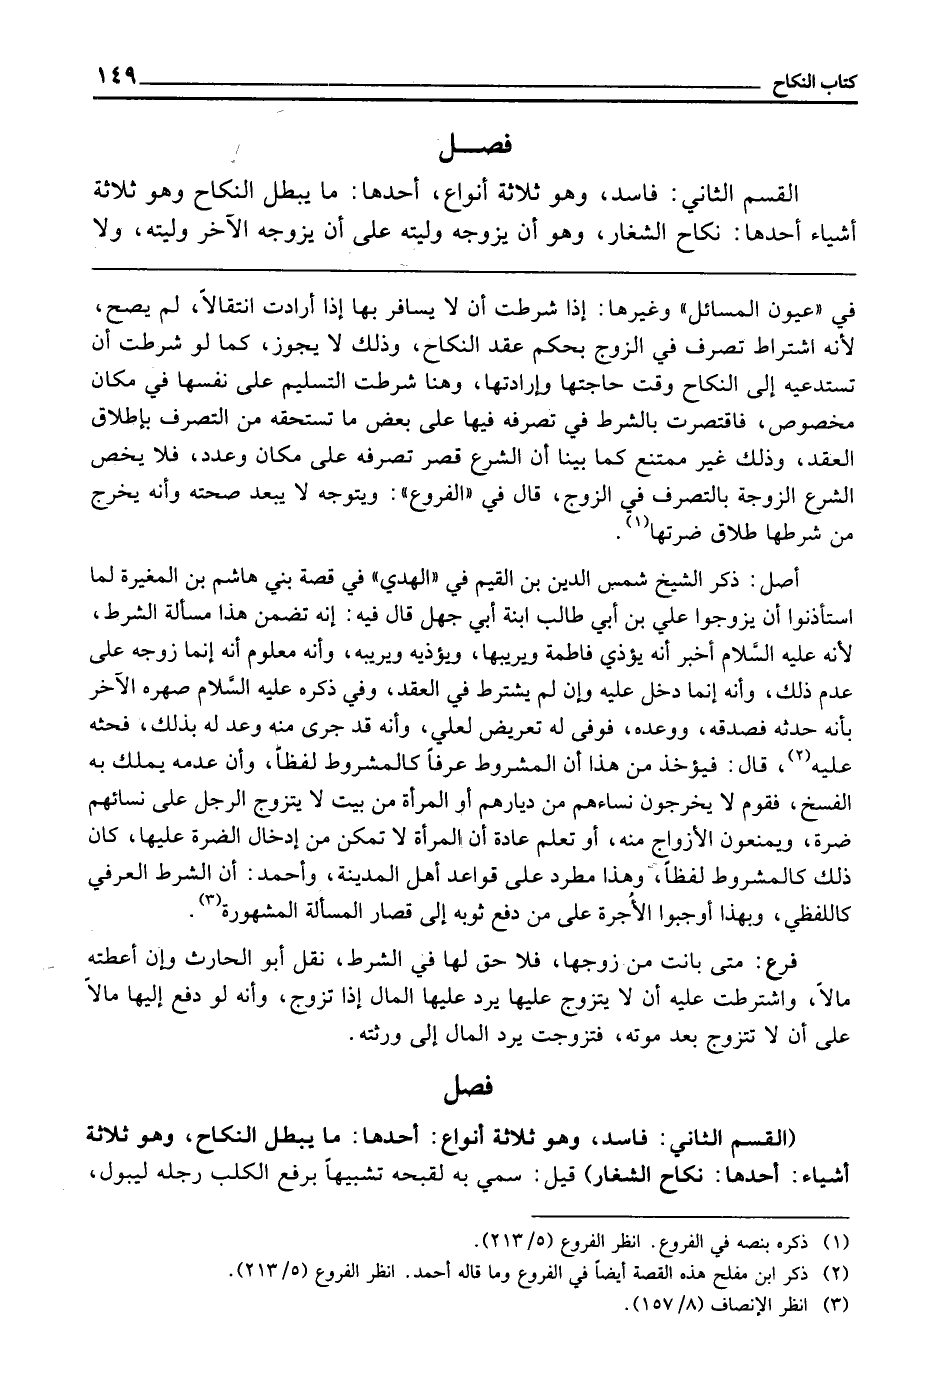 كتاب النكاح ١٤٩
فصـــل
القسم الثاني: فاسد، وهو ثلاثة أنواع، أحدها: ما يبطل النكاح وهو ثلاثة
أشياء أحدها: نكاح الشغار، وهو أن يزوجه وليته على أن يزوجه الآخر وليته، ولا
في «عيون المسائل» وغيرها: إذا شرطت أن لا يسافر بها إذا أرادت انتقالاً، لم يصح،
لأنه اشتراط تصرف في الزوج بحكم عقد النكاح، وذلك لا يجوز، كما لو شرطت أن
تستدعيه إلى النكاح وقت حاجتها وإرادتها، وهنا شرطت التسليم على نفسها في مكان
مخصوص، فاقتصرت بالشرط في تصرفه فيها على بعض ما تستحقه من التصرف بإطلاق
العقد، وذلك غير ممتنع كما بينا أن الشرع قصر تصرفه على مكان وعدد، فلا يخص
الشرع الزوجة بالتصرف في الزوج، قال في «الفروع»: ويتوجه لا يبعد صحته وأنه يخرج
من شرطها طلاق ضرتها(١).
أصل: ذكر الشيخ شمس الدين بن القيم في «الهدي» في قصة بني هاشم بن المغيرة لما
استأذنوا أن يزوجوا علي بن أبي طالب ابنة أبي جهل قال فيه: إنه تضمن هذا مسألة الشرط،
لأنه عليه السَّلام أخبر أنه يؤذي فاطمة ويريبها، ويؤذيه ويريبه، وأنه معلوم أنه إنما زوجه على
عدم ذلك، وأنه إنما دخل عليه وإن لم يشترط في العقد، وفي ذكره عليه السَّلام صهره الآخر
بأنه حدثه فصدقه، ووعده، فوفى له تعريض لعلي، وأنه قد جرى منه وعد له بذلك، فحثه
عليه(٢)، قال: فيؤخذ من هذا أن المشروط عرفاً كالمشروط لفظاً، وأن عدمه يملك به
الفسخ، فقوم لا يخرجون نساءهم من ديارهم أو المرأة من بيت لا يتزوج الرجل على نسائهم
ضرة، ويمنعون الأزواج منه، أو تعلم عادة أن المرأة لا تمكن من إدخال الضرة عليها، كان
ذلك كالمشروط لفظاً، وهذا مطرد على قواعد أهل المدينة، وأحمد: أن الشرط العرفي
كاللفظي، وبهذا أوجبوا الأُجرة على من دفع ثوبه إلى قصار المسألة المشهورة(٣).
فرع: متى بانت من زوجها، فلا حق لها في الشرط، نقل أبو الحارث وإن أعطته
مالاً، واشترطت عليه أن لا يتزوج عليها يرد عليها المال إذا تزوج، وأنه لو دفع إليها مالاً
على أن لا تتزوج بعد موته، فتزوجت يرد المال إلى ورثته.
فصل
(القسم الثاني: فاسد، وهو ثلاثة أنواع: أحدها: ما يبطل النكاح، وهو ثلاثة
أشياء: أحدها: نكاح الشغار) قيل: سمي به لقبحه تشبيهاً برفع الكلب رجله ليبول،
(١) ذكره بنصه في الفروع. انظر الفروع (٥/ ٢١٣).
(٢) ذكر ابن مفلح هذه القصة أيضاً في الفروع وما قاله أحمد. انظر الفروع (٥/ ٢١٣).
(٣) انظر الإنصاف (٨/ ١٥٧).